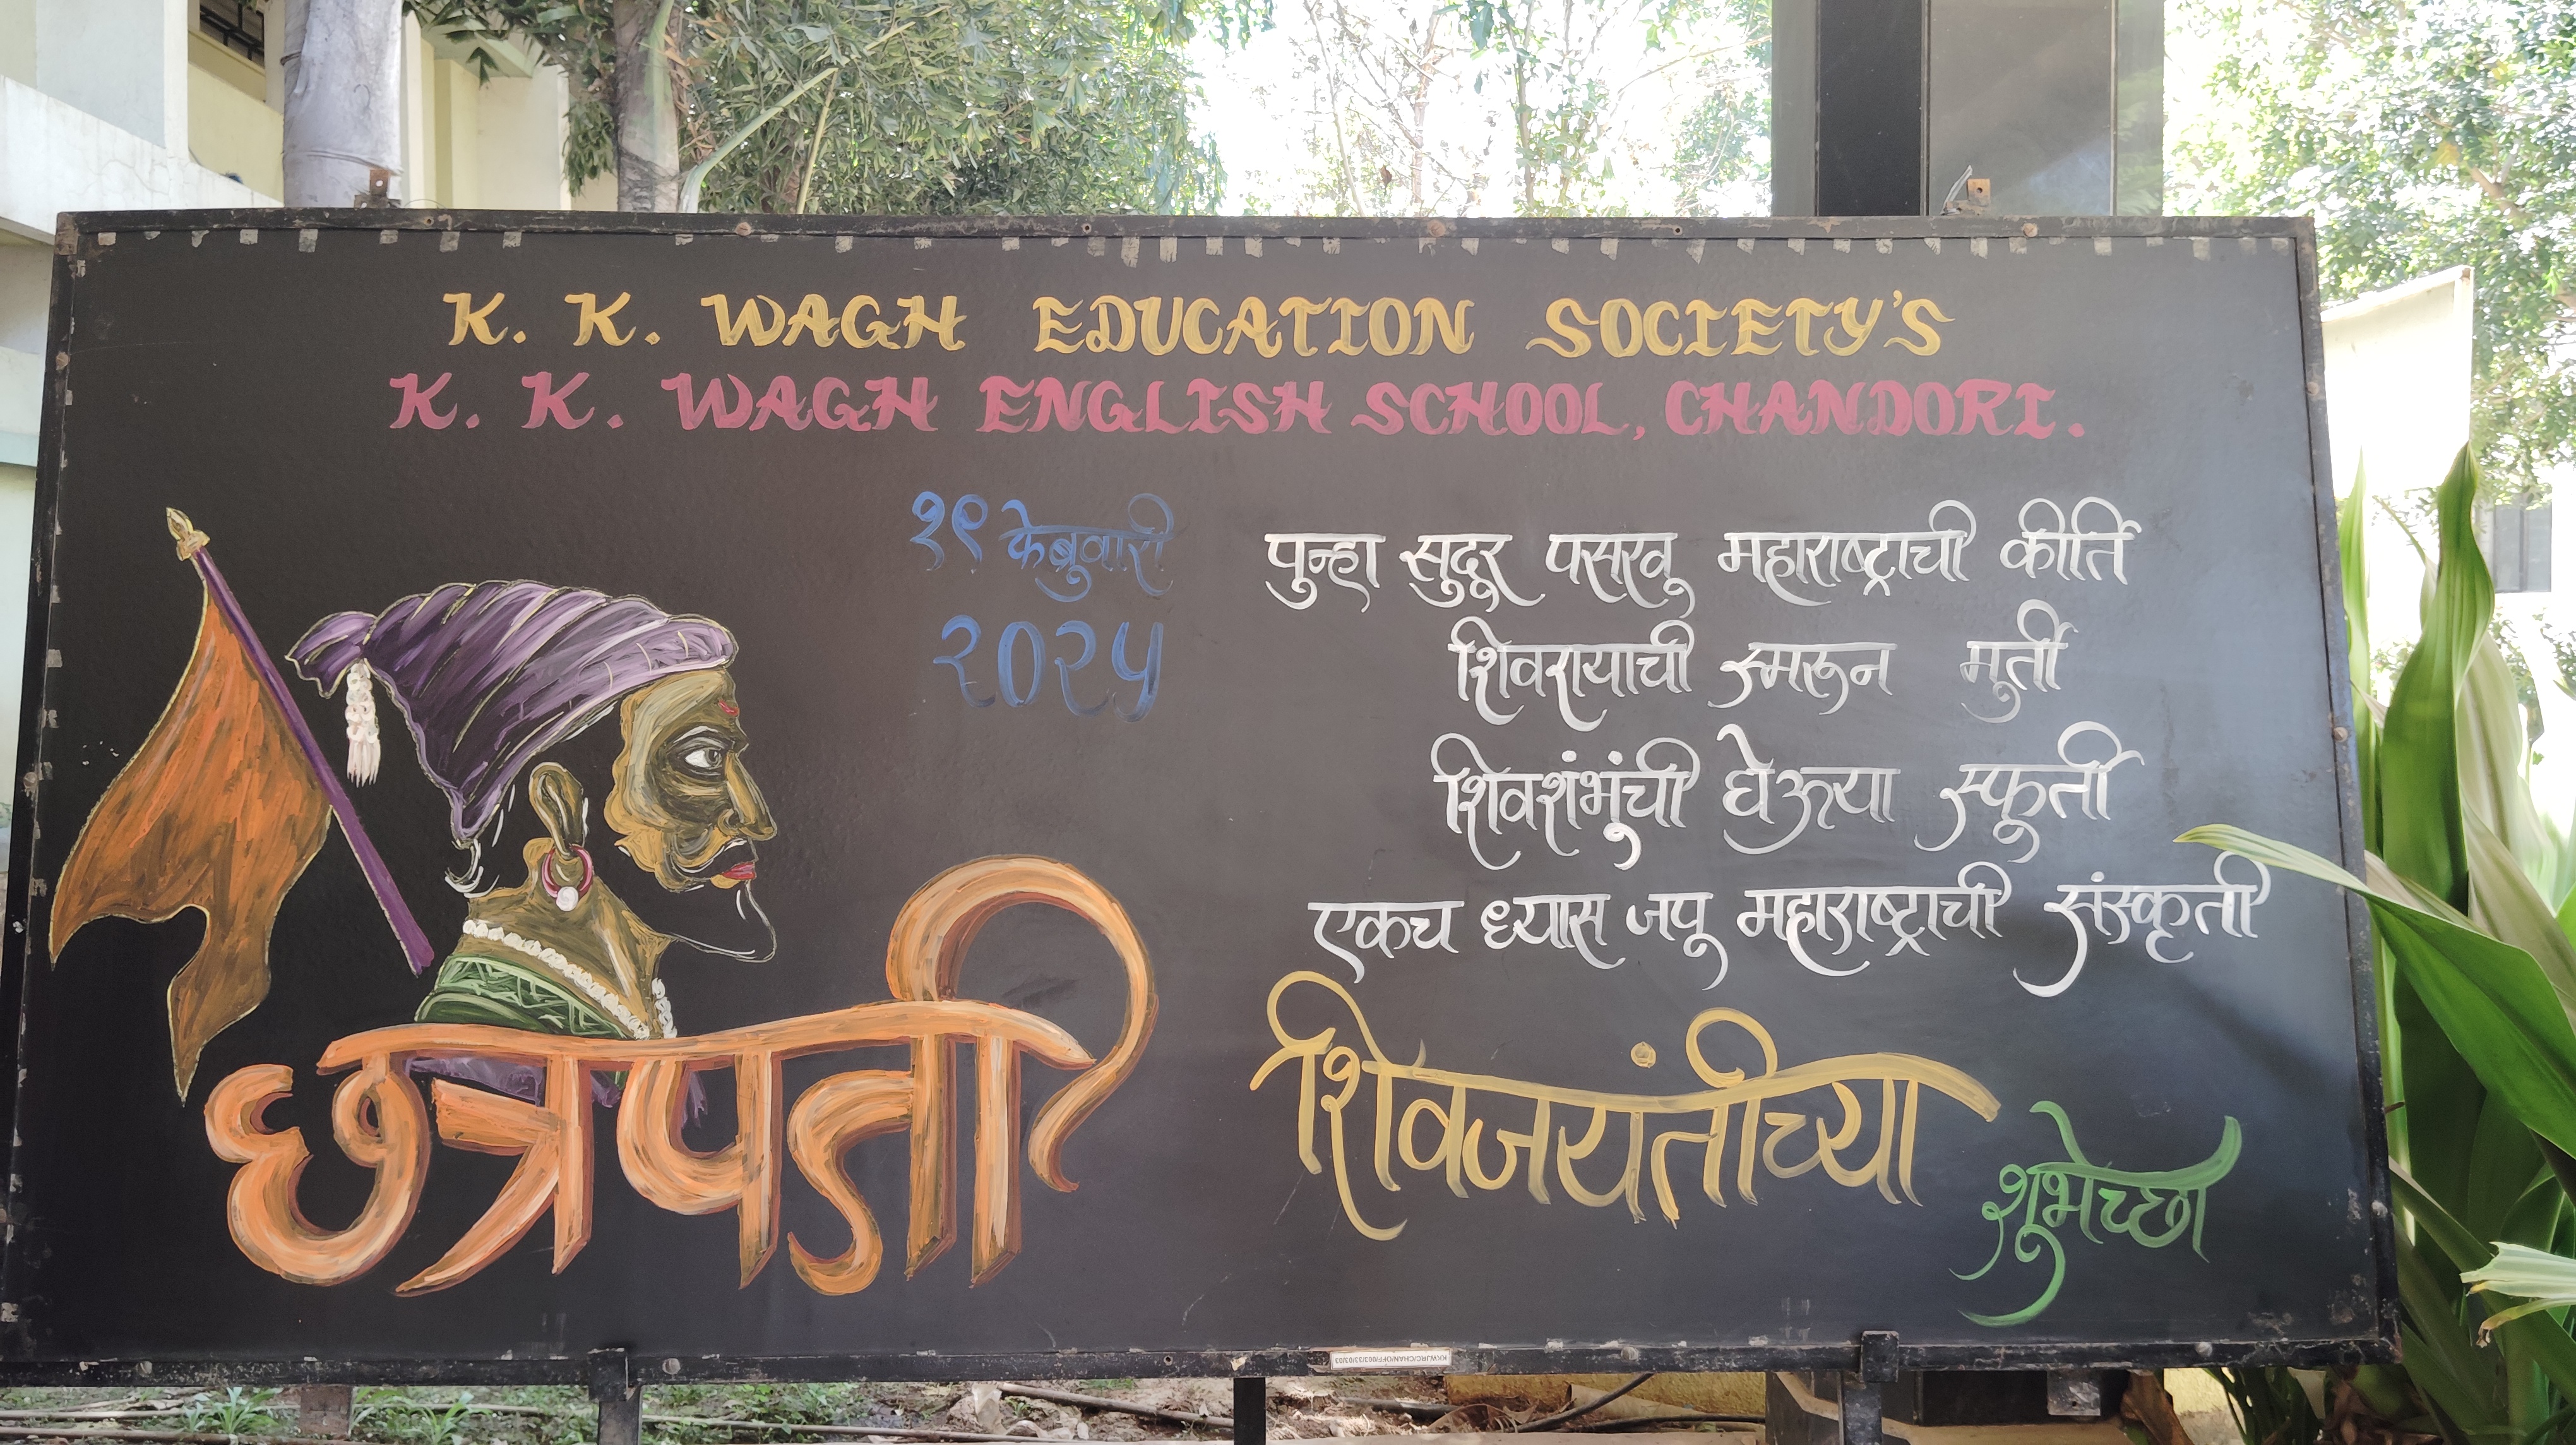 K. K. WAGH EDUCATION SOCIETY'S
K. K. WAGH ENGLISH SCHOOL, CHANDORI.
१९ फेब्रुवारी
२०२५
छत्रपती
पुन्हा सुदूर पसरवू महाराष्ट्राची कीर्ति
शिवरायाची स्मरून मुर्ती
शिवशंभुंची घेऊया स्फूर्ती
एकच ध्यास जपू महाराष्ट्राची संस्कृती
शिवजयंतीच्या
शुभेच्छा